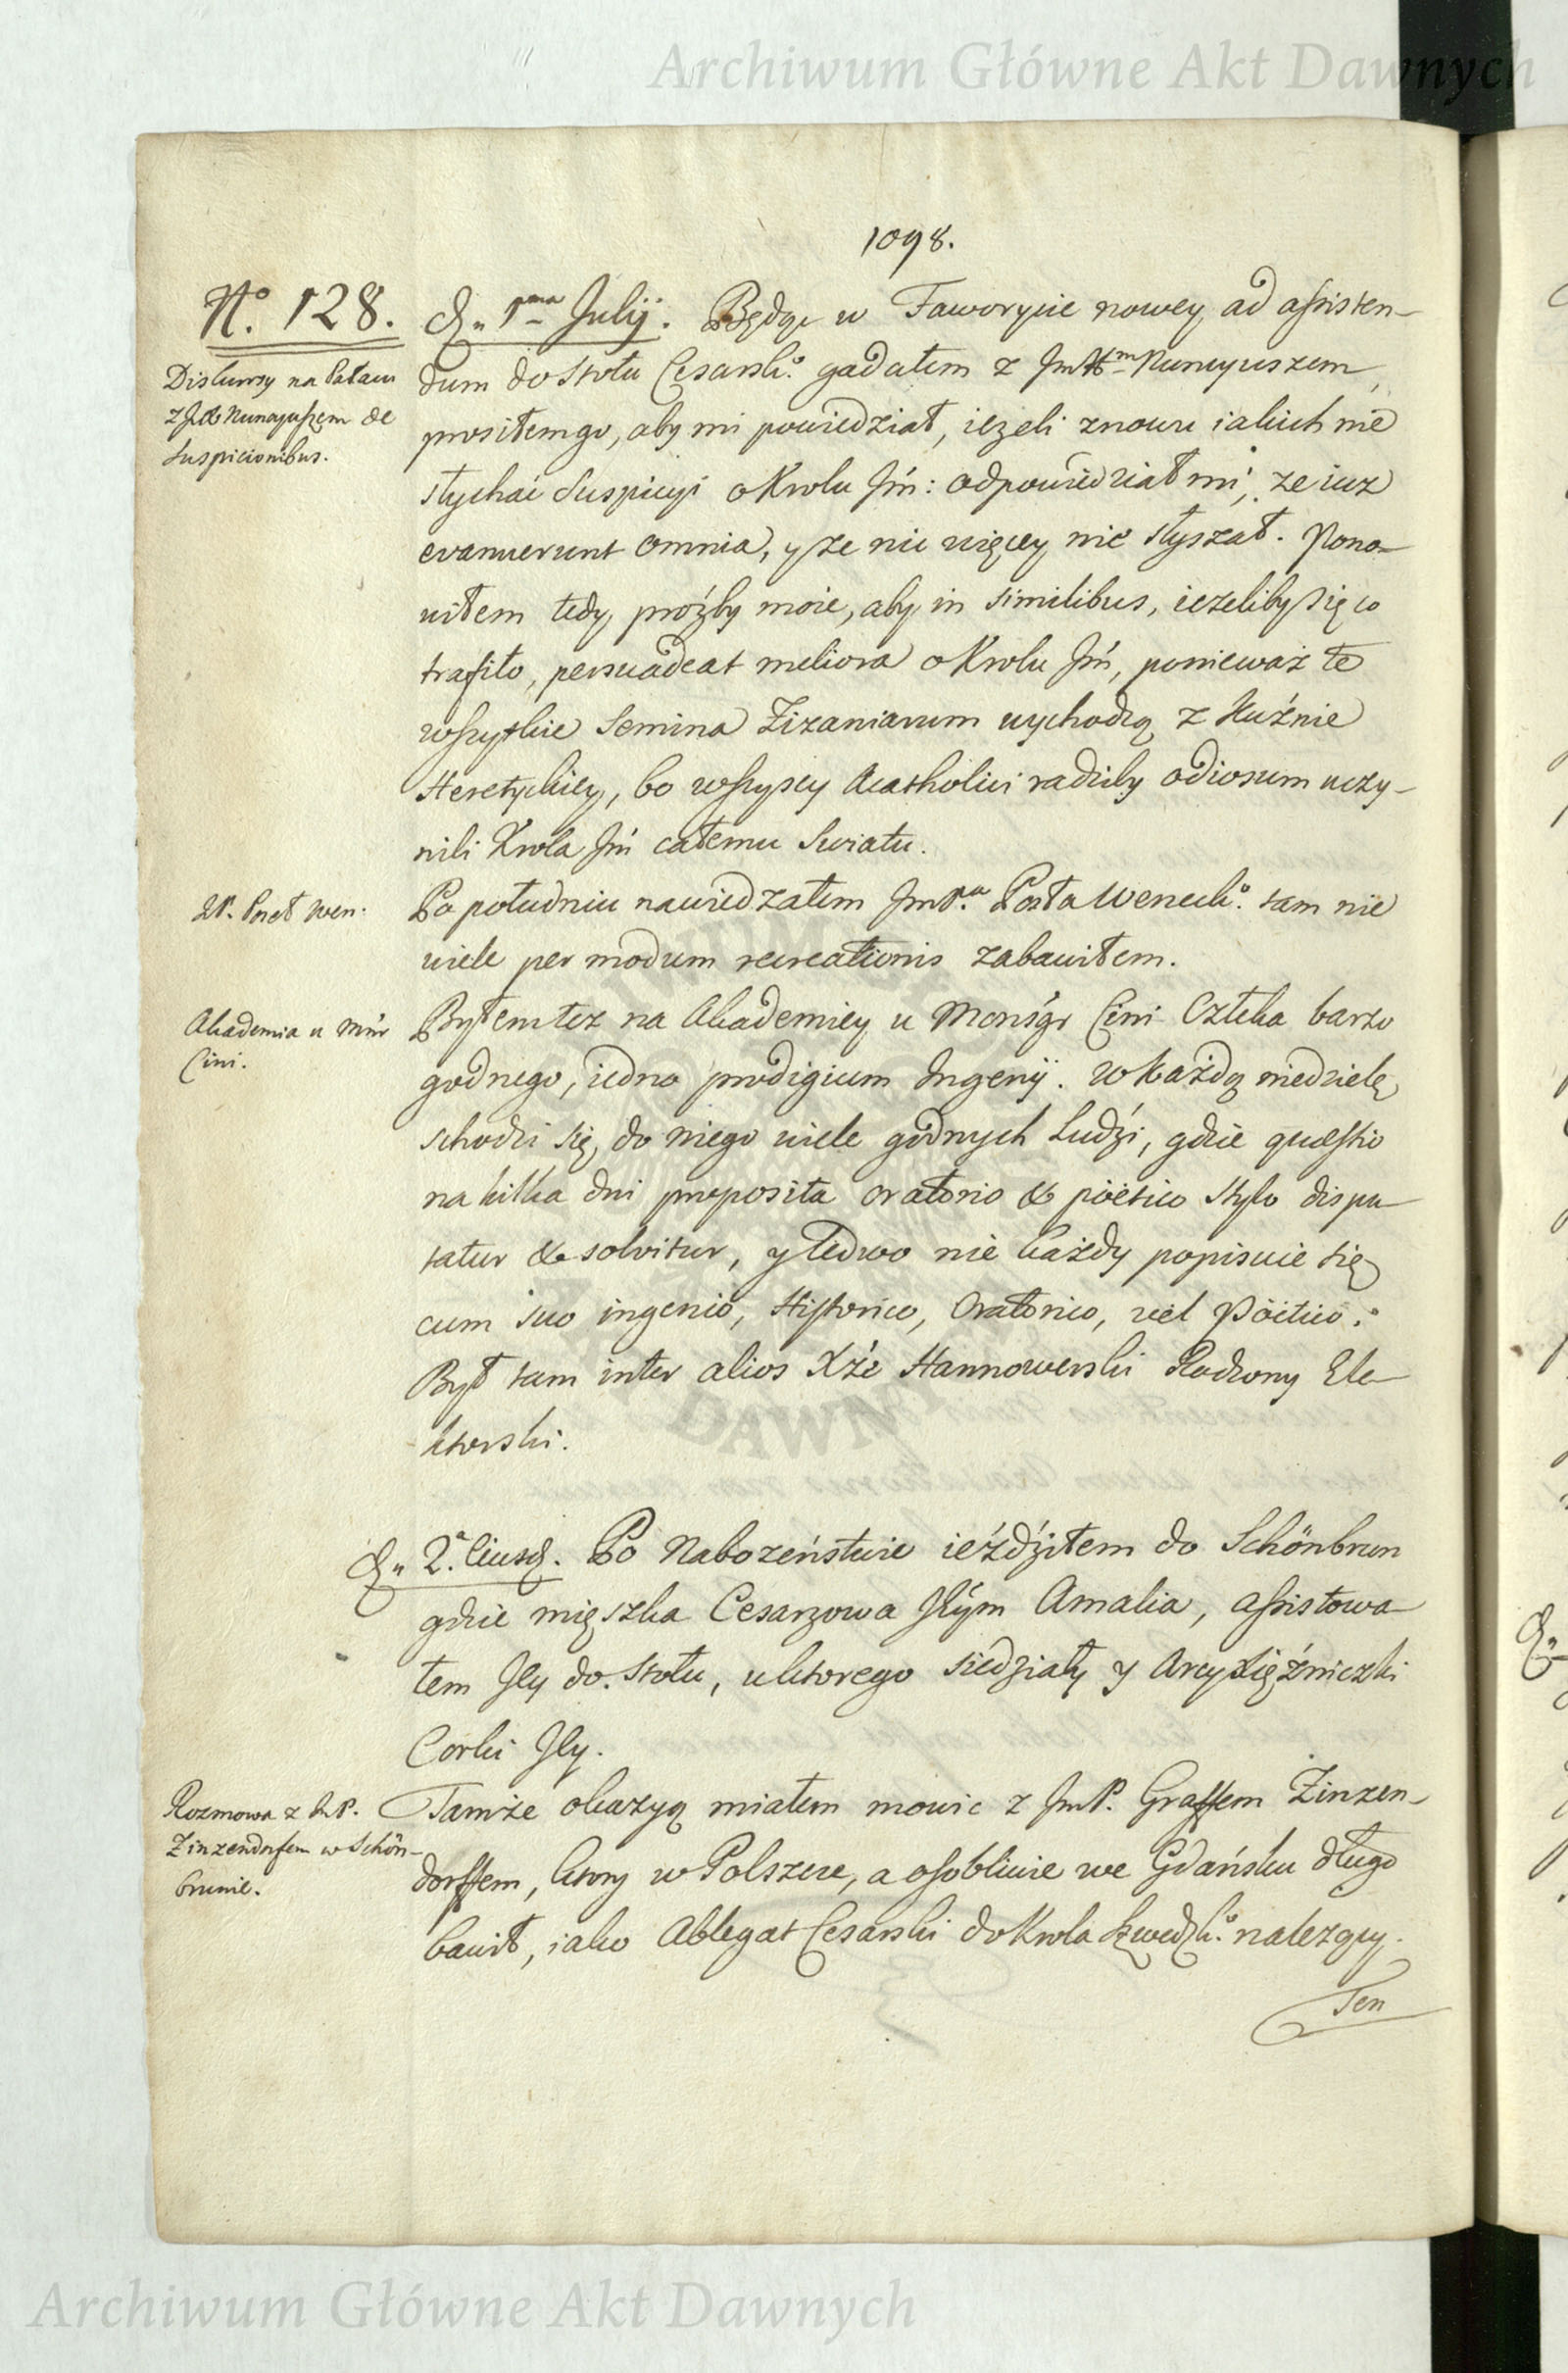 Archiwum Główne Akt Dawnych
1098.
No. 128.
Diskursy na Pałacu
z JX Nuncyuszem de
Suspicionibus.
d. 1ma Julij. Będąc w Faworycie nowey ad assisten-
dum do Stołu Cesarsko. gadałem z JmXm Nuncyuszem,
prosiłem go, aby mi powiedział, ieżeli znowu iakich nie
słychać Suspicyi o Krolu Jm: odpowiedział mi, ze iuz
evanuerunt omnia, y ze nic więcey nie słyszał. Pono-
wiłem tedy proźby moie, aby in similibus, iezeliby się co
trafiło, persuadeat meliora o Krolu Jm, ponieważ te
wszytkie Semina Zizaniarum wychodzą z Kuźnie
Heretyckiey, bo wszyscy Acatholici radziby odiosum uczy-
nili Krola Jm całemu Swiatu.
JP. Poseł Wen.
Po południu nawiedzałem JmPa. Posła Weneck.o tam nie
wiele per modum recreationis zabawiłem.
Akademia u Mnr
Cini.
Byłem tez na Akademiey u Monsgr Cini Człeka barzo
godnego, iedno prodigium Ingenij. w każdą niedzielę
schodzi się do niego wiele godnych Ludzi, gdzie quæstio
na kilka dni proposita oratorio & poëtico Stylo dispu-
tatur & solvitur, y ledwo nie każdy popisuie się
cum suo ingenio, Historico, Oratorico, vel Poëtico.
Był tam inter alios Xże Hannowerski Rodzony Ele-
ktorski.
d. 2a eiusd. Po Nabozeństwie ieźdźiłem do Schönbrun
gdzie mięszka Cesarzowa Jeym Amalia, assistowa-
łem Jey do Stołu, u ktorego siedziały y Arcyxiężniczki
Corki Jey.
Rozmowa z JmP.
Zinzendorfem w Schön-
brunie.
Tamże okazyą miałem mowic z JmP. Graffem Zinzen-
dorffem, ktory w Polszcze, a osobliwie we Gdańsku długo
bawił, iako Ablegat Cesarski do Krola Szwedzk.o należący.
Ten
Archiwum Główne Akt Dawnych